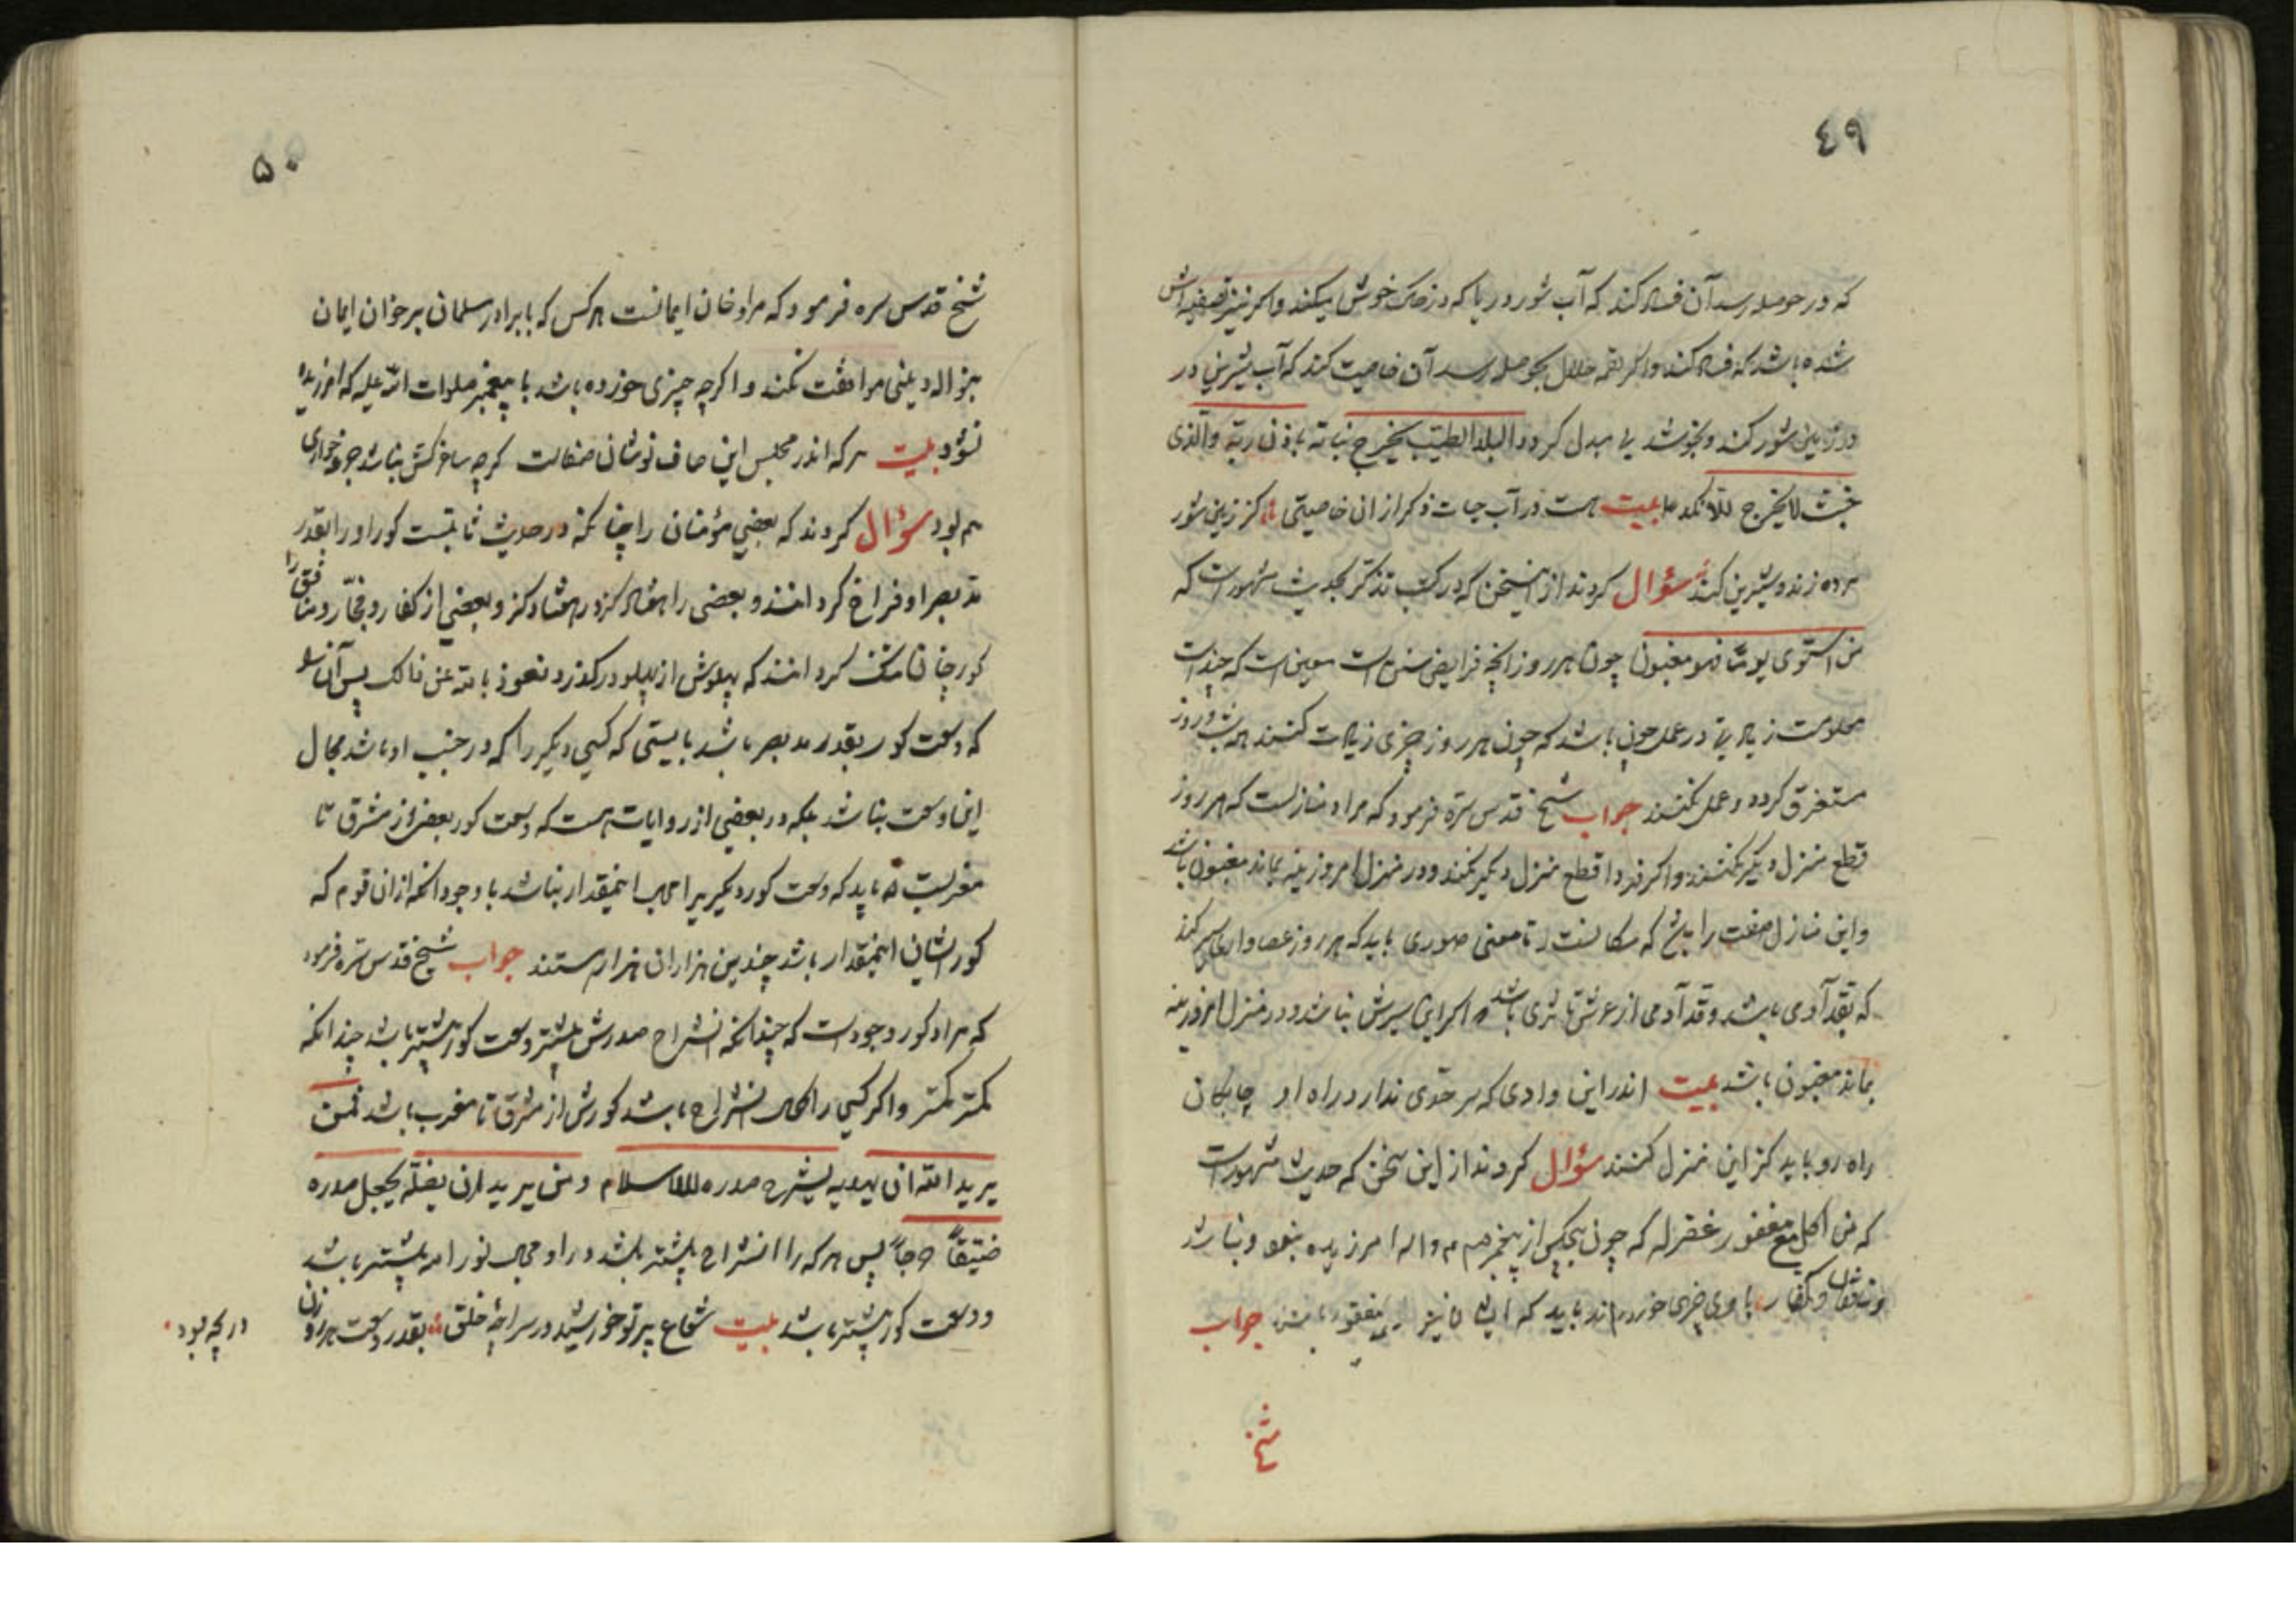 ٤٩
که در حوصله رسد آن فساد کند که آب شور دریا که در زمین خوش میکند واکر نیز تصفیه اش
شده باشد که فساد کند واکر لقمه حلال بحوصله رسد آن خاصیت کند که آب شیرین در
در زمین شور کند وبخوشد بی مبدل کردد البلد الطیّب یخرج نباته باذن ربّه والذی
خبث لا یخرج الّا نکدا بیت هست در آب حیات ذکر ازان خاصیتی کز زمین شور
مرده زنده وشیرین کند سؤال کردند از این سخن که در کتب تذکر بحدیث مشهور است که
من استوی یوماه فهو مغبون چون هر روز آنچه فرایض وسنن است معین است که چند است
معلومست زیادتی در عمل چون باشد که چون هر روز چیزی زیادت کنند همه شب و روز
مستغرق کردد وعمل نکنند جواب شیخ قدس سرّه فرمود که مراد منازلست که هر روز
قطع منزل دیکر بکنند واکر فردا قطع منزل دیکر نکند ودر منزل امروزینه بماند مغبون باشد
واین منازل صفت راباید که
که بقد آدمی باشد وقد آدمی از عرش تا ثری باشد واکر این سیرش نباشد ودر منزل امروزینه
بماند مغبون باشد بیت اندر این وادی که سر حدّی ندارد راه او چابکان
راه رو باید کز این منزل کنند سؤال کردند از این سخن که حدیث مشهور است
که من اکل مع مغفور غفر له که چون هیچکس از پیغمبر صم واله امرزیده نبود ونباشد
ومنافقان وکفار با وی چیزی خورده اند باید که ایشان نیز مغفور باشند جواب
شیخ
۵۰
شیخ قدس سره فرمود که مراد خان ایمانست هر کس که با برادر مسلمان بر خوان ایمان
بنواله دینی موافقت نکند واکرچه چیزی خورده باشد با پیغمبر صلوات اللّه علیه که امرزیده
نشود بیت هر که اندر مجلس این صاف نوشان صفاست کرچه ساغرکش نباشد جرعه خواری
هم بود سؤال کردند که بعضی مؤمنان را چنانکه در حدیث ثابتست کور او را بقدر
مد بصر او فراخ کردانند وبعضی را هفتاد کز در هفتاد کز وبعضی از کفار وفجّار ومنافق را
کور چنان تنک کردانند که پهلوش از پهلو درکذرد نعوذ باللّه من ذالک پس آن
که وسعت کور بقدر مد بصر باشد بایستی که کسی دیکر را که در جنب او باشد مجال
این وسعت نباشد بلکه در بعضی از روایات هست که وسعت کور بعضی از مشرق تا
مغربست نه باید که وسعت کور دیکریرا مجال اینمقدار نباشد با وجود انکه ازان قوم که
کور ایشان اینمقدار باشد چندین هزاران هزار هستند جواب شیخ قدس سرّه فرمود
که مراد کور وجود است که چندانکه انشراح صدرش بیشتر وسعت کور بیشتر باشد چندانکه
کمتر کمتر واکر کسی را کمال انشراح باشد کورش از مشرق تا مغرب باشد فمن
یرید اللّه ان یهدیه یشرح صدره للاسلام ومن یرید ان یضلّه یجعل صدره
ضیّقاً حرجاً پس هر که را انشراح بیشتر باشد در او مجال نور امد بیشتر باشد
ووسعت کور بیشتر باشد بیت شعاع پرتو خورشید در سراچۀ خلق بقدر وسعت هر روزن
دریچه بود